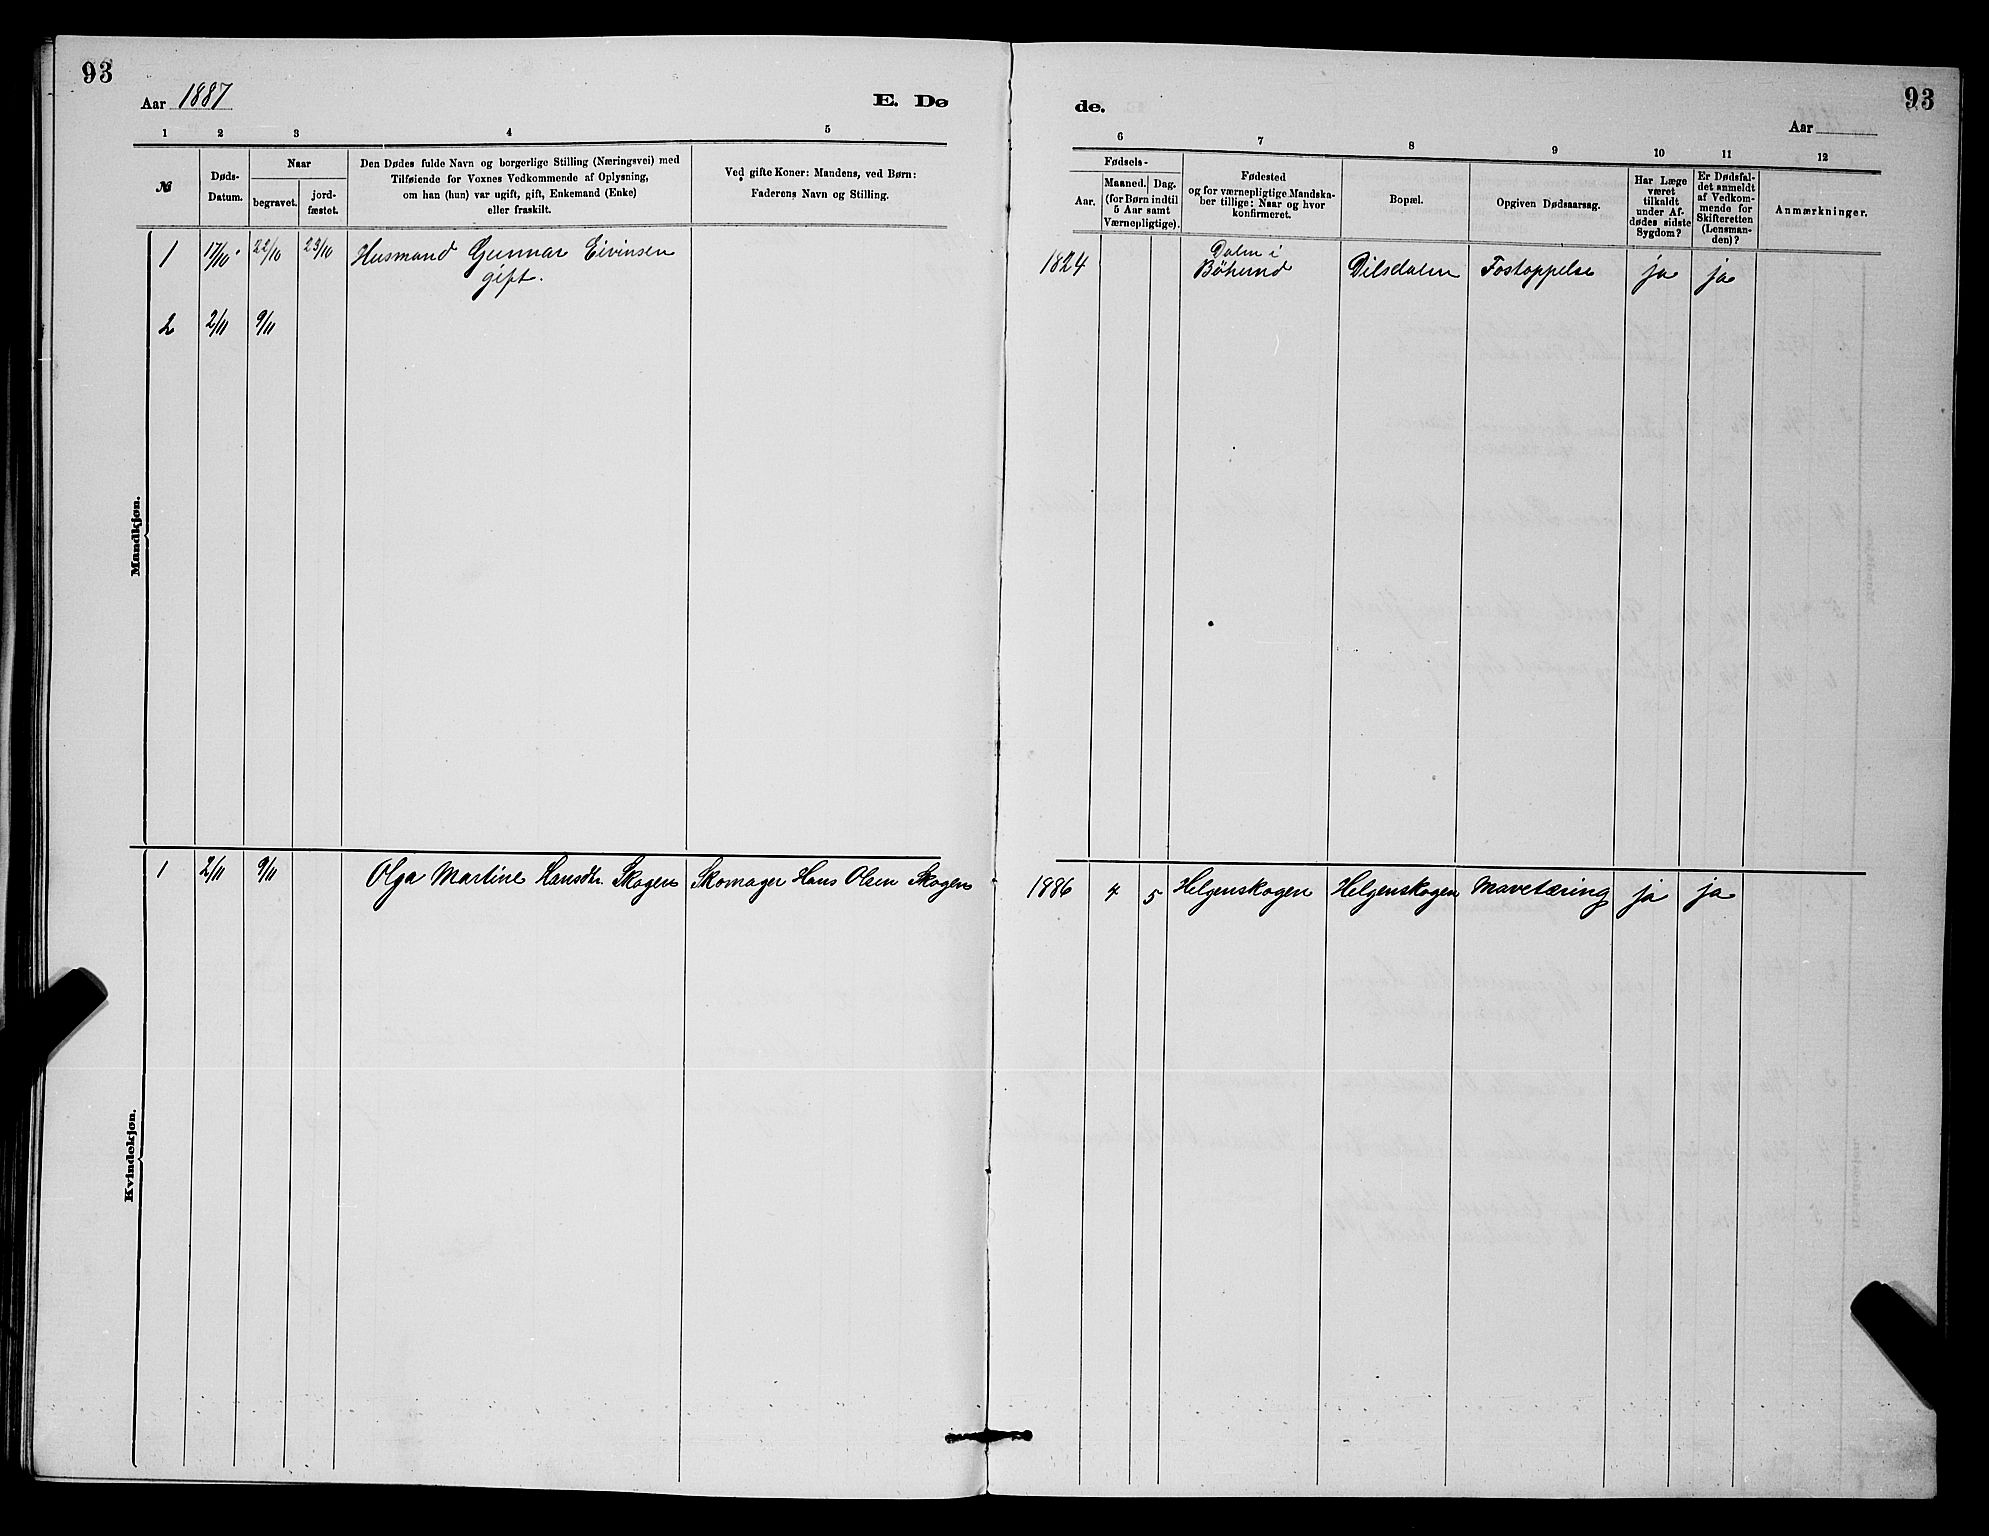 93
Aar 1887
E. Dø
de.
93
Aar
1 2 3 4 5
6 7 8 9 10 11 12
№
Døds-
Datum.
Naar
begravet.
jord-
fæstet.
Den Dødes fulde Navn og borgerlige Stilling (Næringsvei) med
Tilføiende for Voxnes Vedkommende af Oplysning,
om han (hun) var ugift, gift, Enkemand (Enke)
eller fraskilt.
Ved gifte Koner: Mandens, ved Børn:
Faderens Navn og Stilling.
Fødsels-
Aar.
Maaned. Dag.
(for Børn indtil
5 Aar samt
Værnepligtige).
Fødested
og for værnepligtige Mandska-
ber tillige: Naar og hvor
konfirmeret.
Bopæl.
Opgiven Dødsaarsag.
Har Læge
været
tilkaldt
under Af-
dødes sidste
Sygdom?
Er Dødsfal-
det anmeldt
af Vedkom-
mende for
Skifteretten
(Lensman-
den)?
Anmærkninger.
Mandkjøn.
1 17/10 22/10 23/10 Husmand Gunnar Eivinsen
gift.
1824 Dalen i
Böherred Dilsdalen Fostoppelse ja ja
2 2/11 9/11
Kvindekjøn.
1 2/11 9/11 Olga Martine Hansdtr. Skogen Skomager Hans Olsen Skogen
1886 4 5 Helgenskogen Helgenskogen Mavetæring ja ja